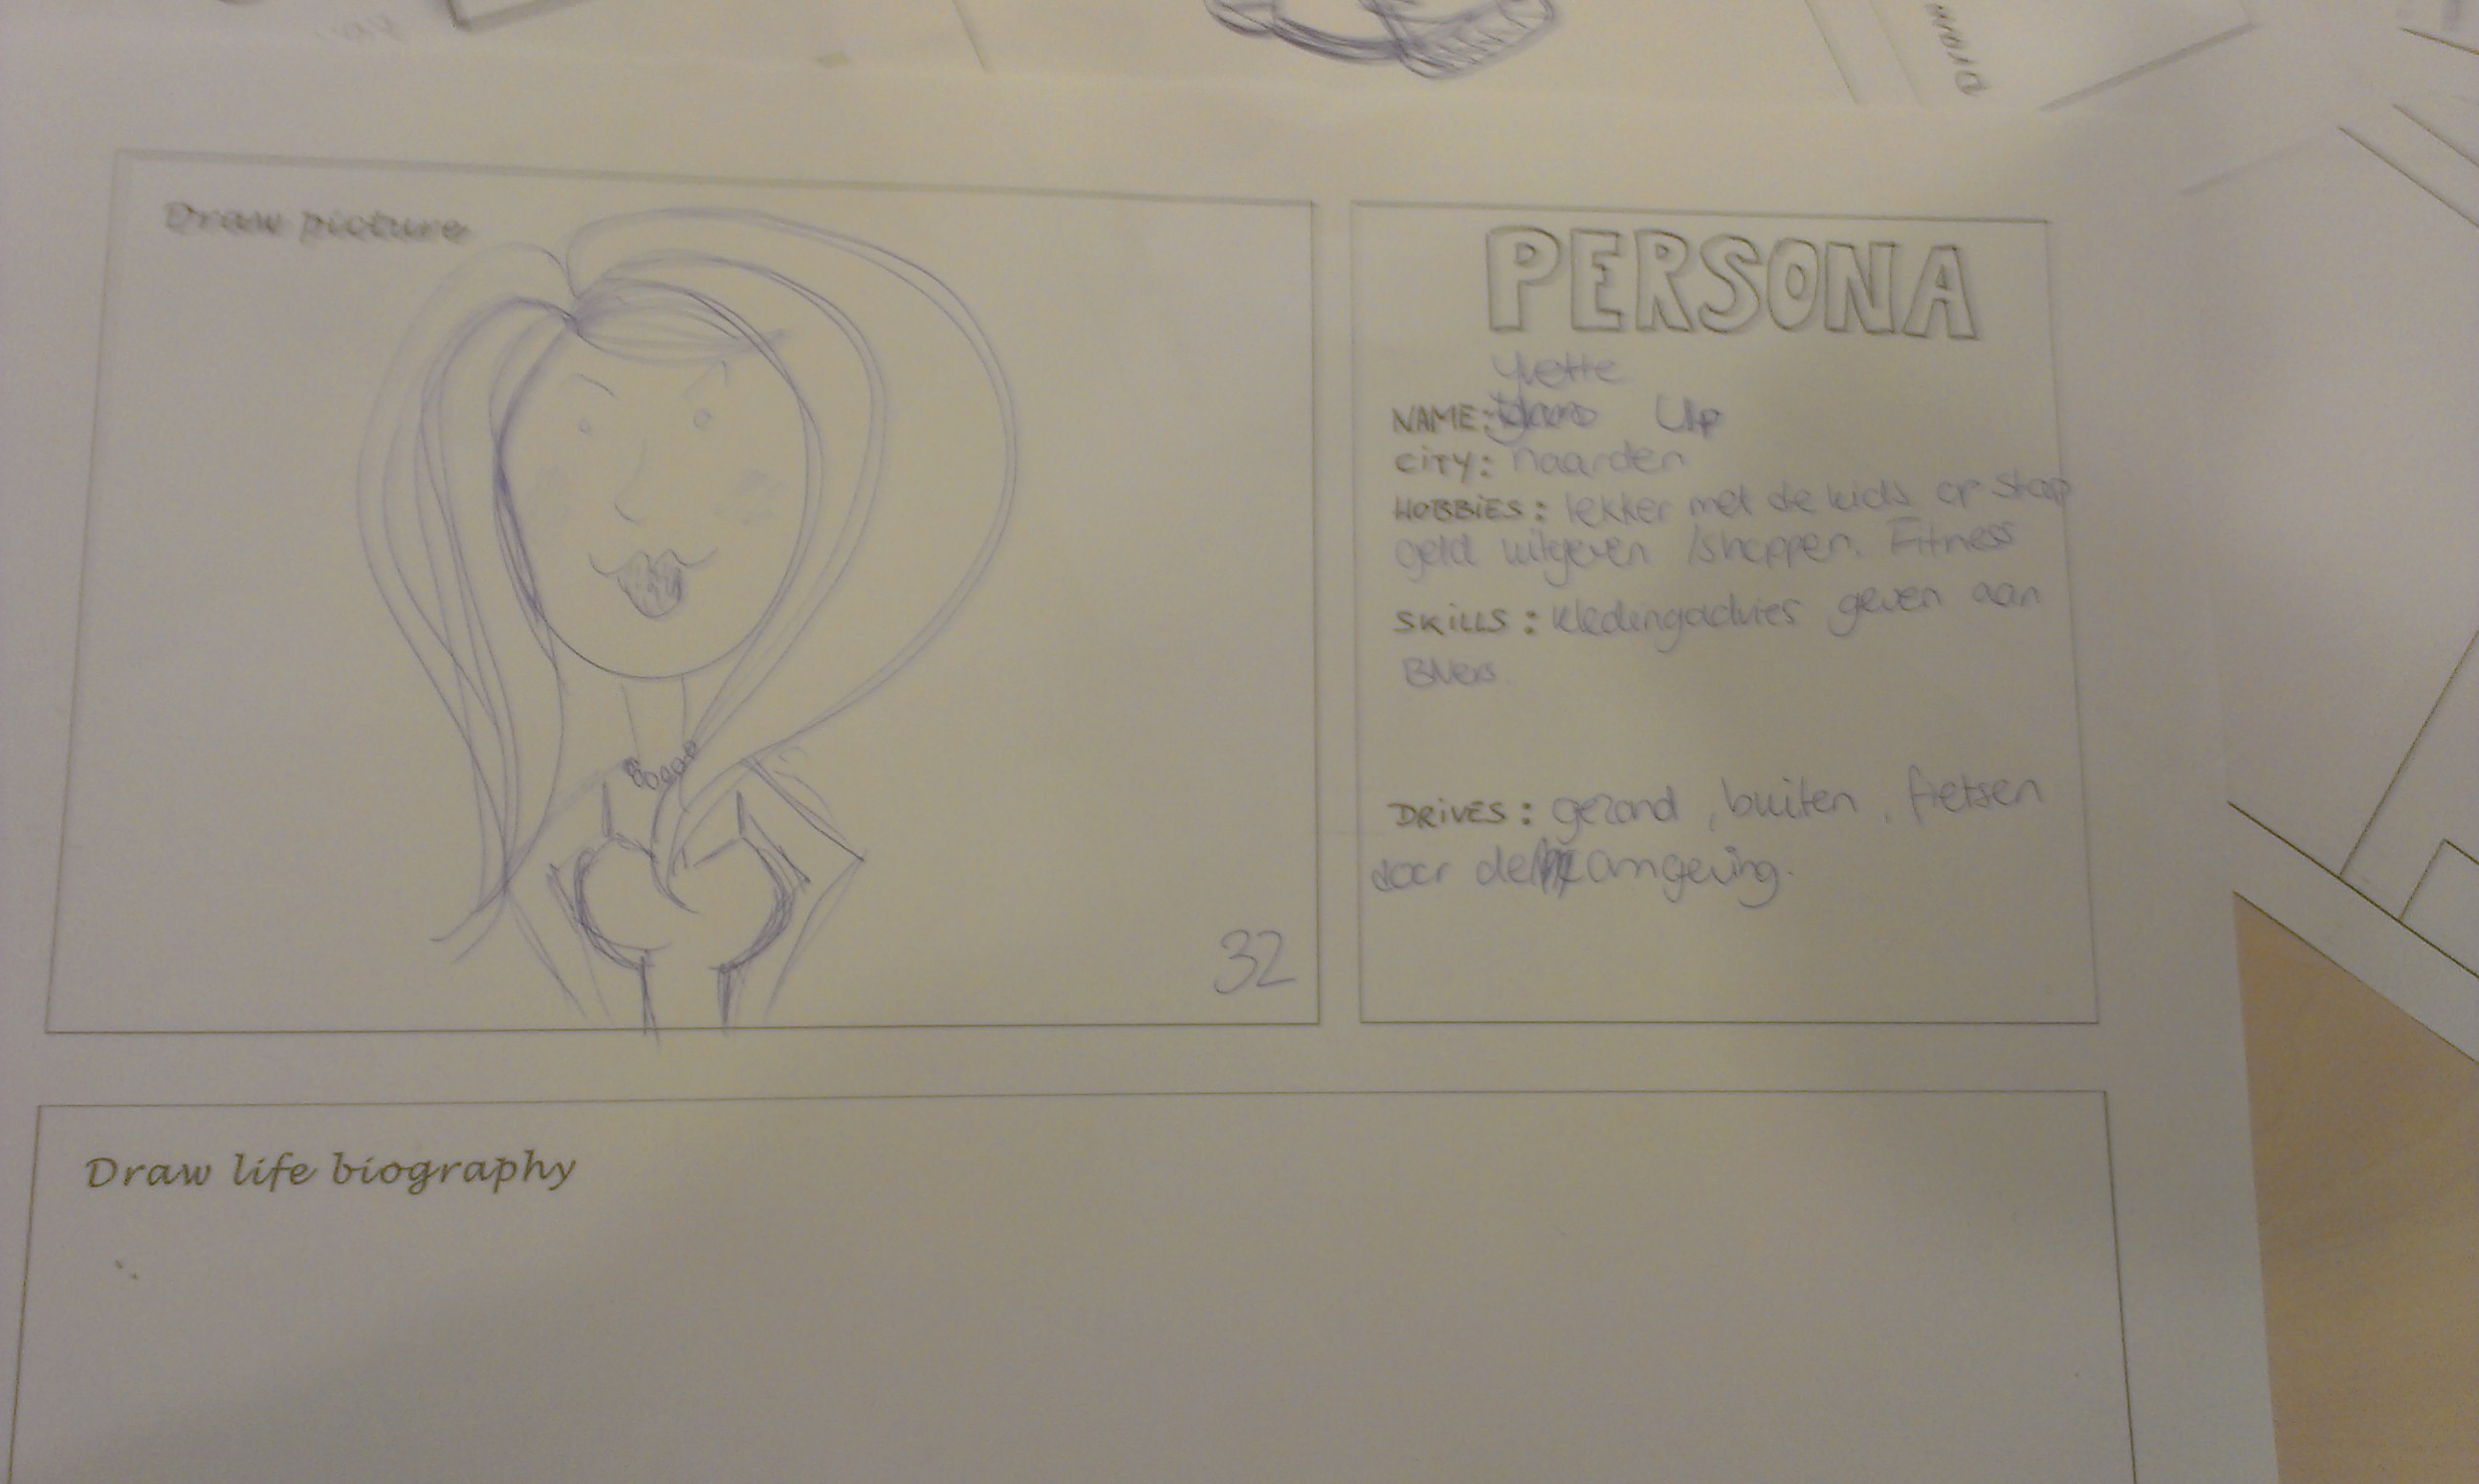 Draw
Draw picture
32
PERSONA
Yvette
NAME: Up
CITY: naarden
HOBBIES: lekker met de kids op stap
geld uitgeven /shoppen. Fitness
SKILLS: kledingadvies geven aan
BNers
DRIVES: gezond, buiten, fietsen
door de omgeving.
Draw life biography